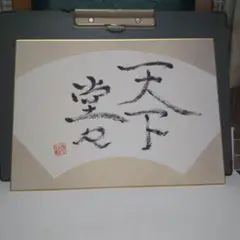 天下
堂々